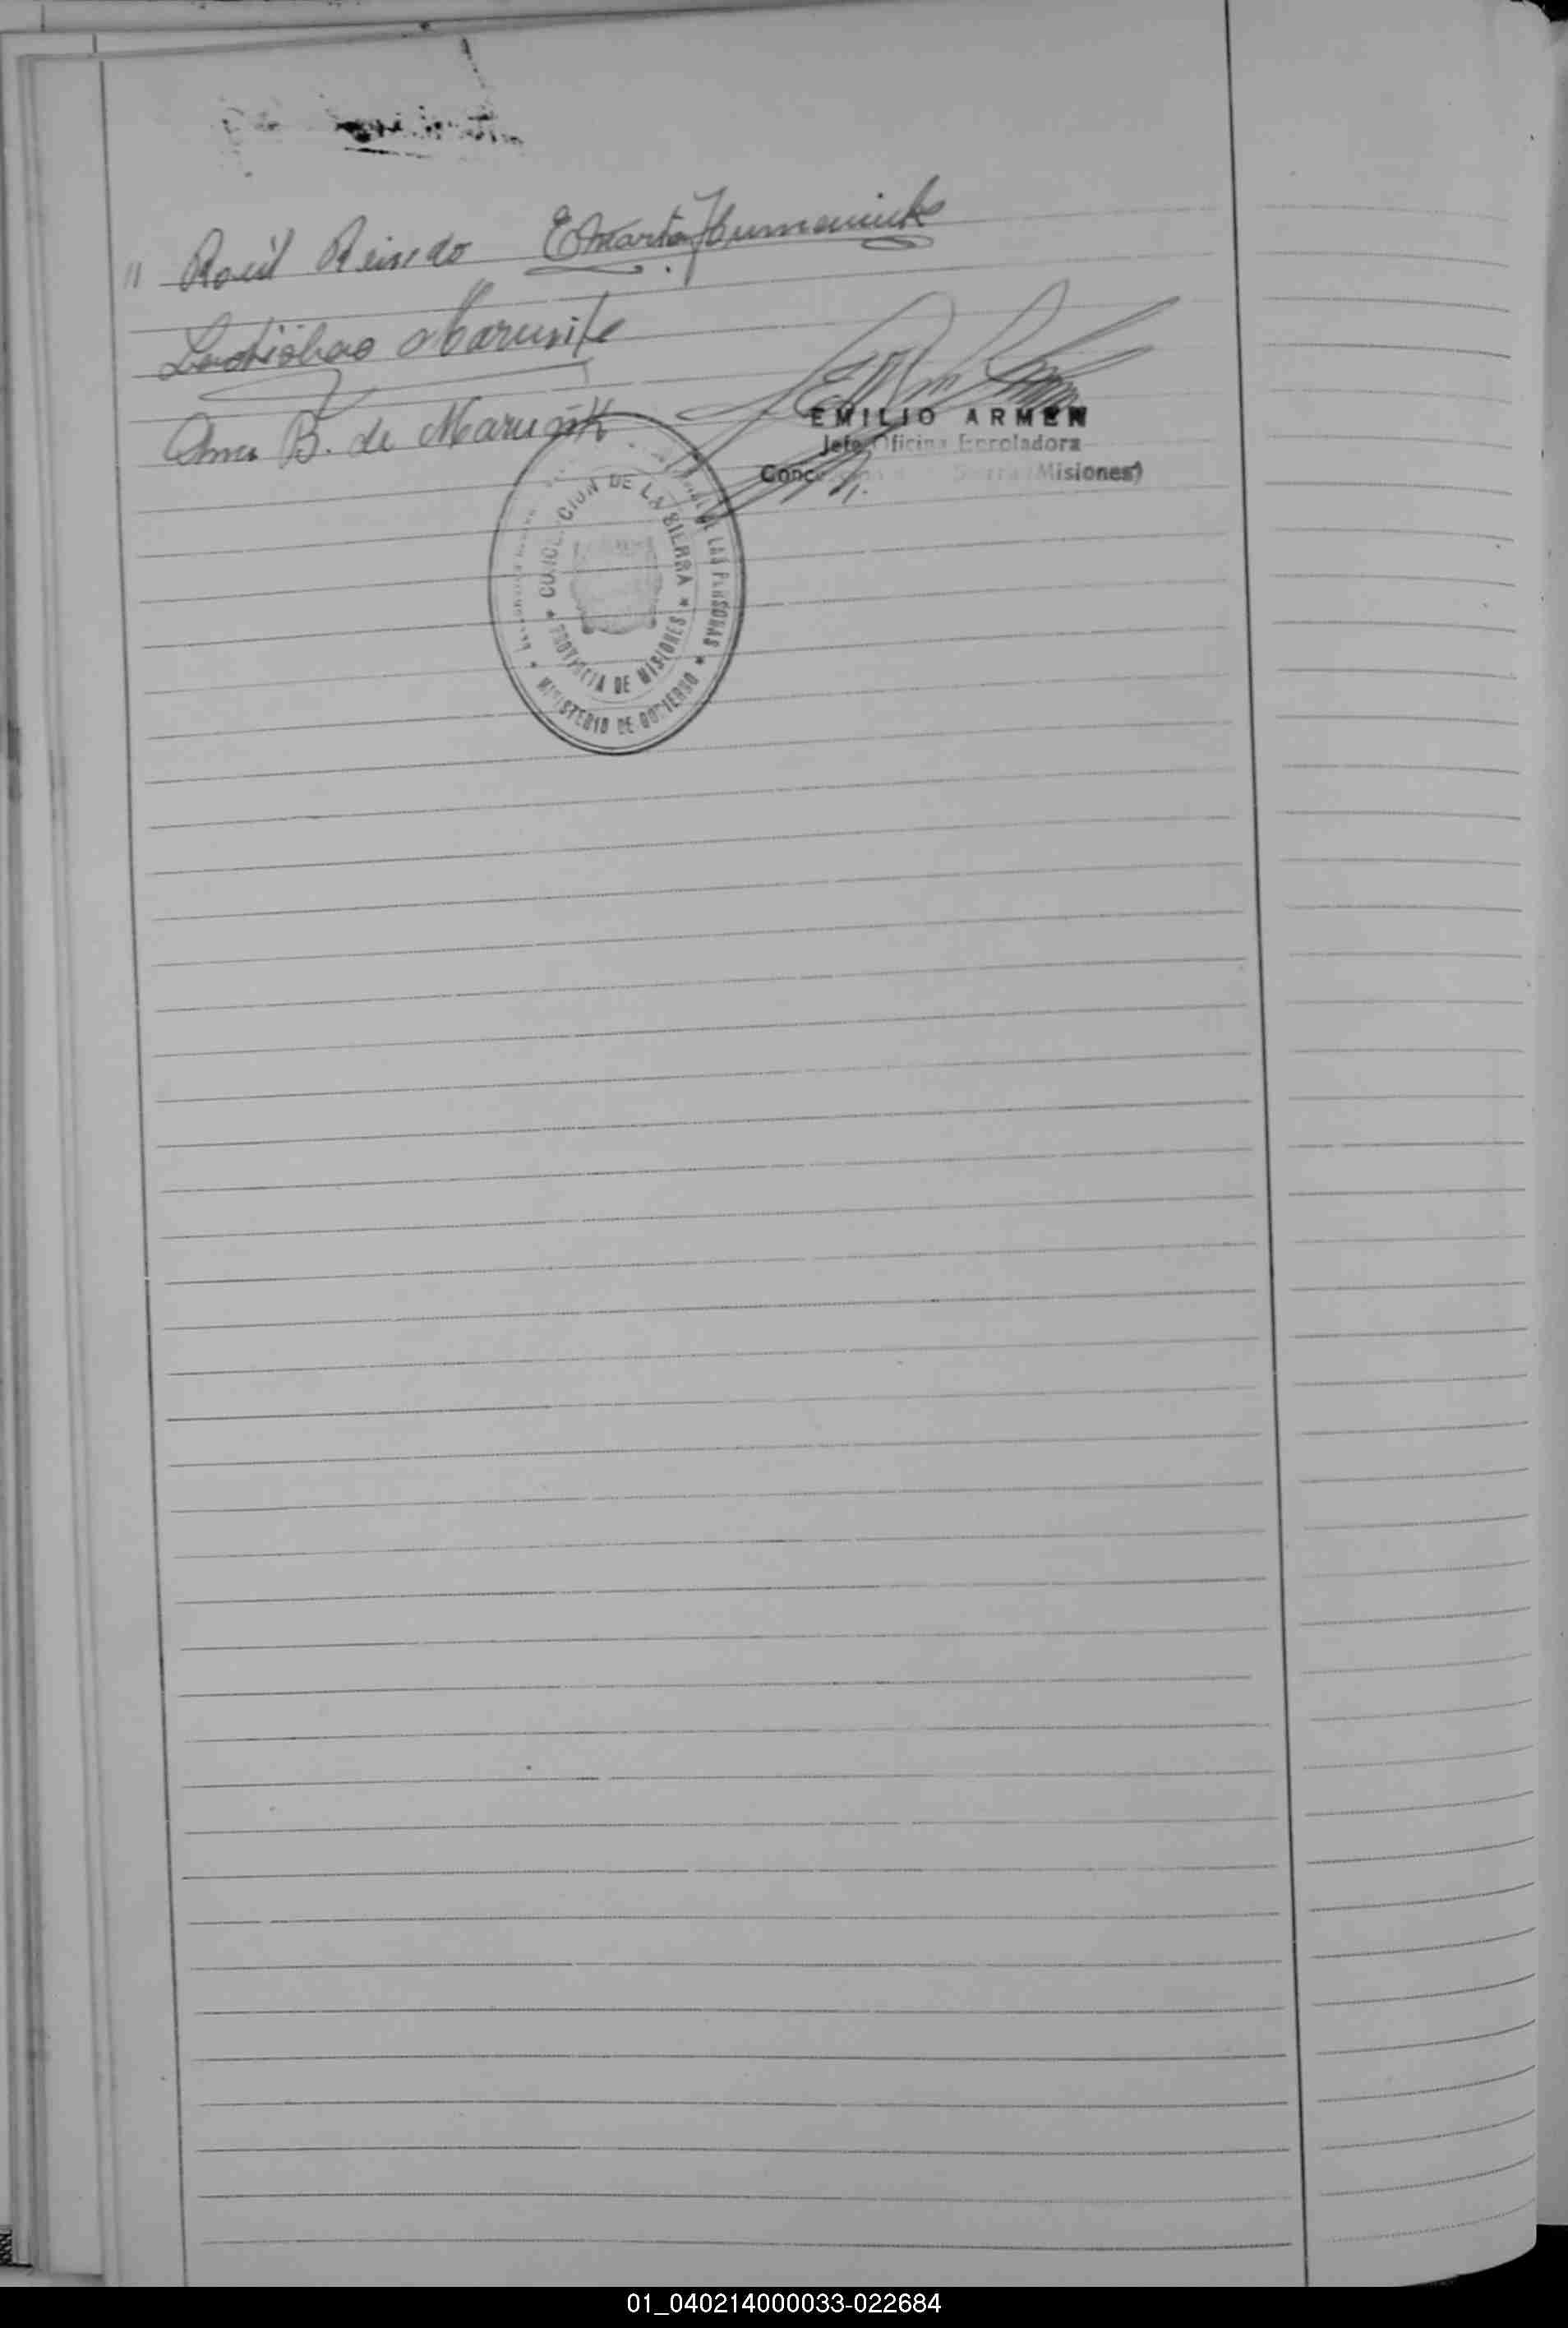 " Raúl Reindo E Marta Humeniuk
Ladislao Marusik
Ana B. de Marusik
EMILIO ARMEN
Jefe Oficina Enroladora
Sierra (Misiones)
* CONCEPCION DE LA SIERRA *
PROVINCIA DE MISIONES
DE LAS PERSONAS
* MINISTERIO DE GOBIERNO *
01_040214000033-022684